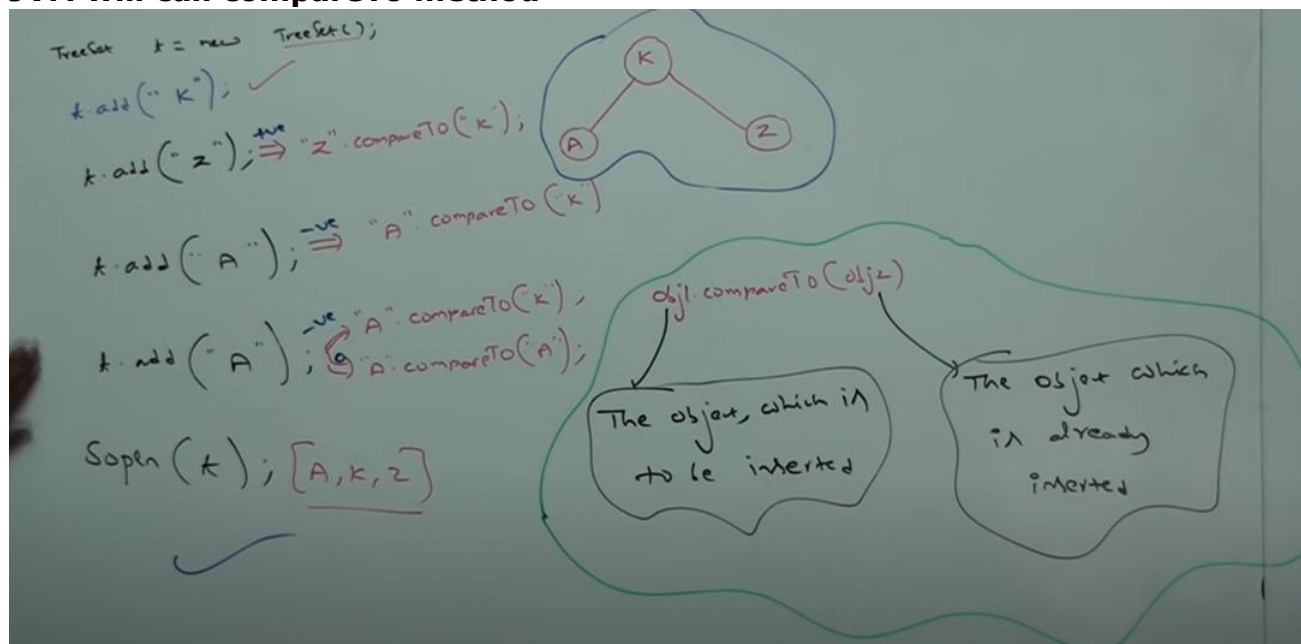 JVM will call compareTo method
TreeSet t = new TreeSet();
t.add("K"); ✓
t.add("Z"); +ve ⇒ "Z".compareTo("K");
t.add("A"); -ve ⇒ "A".compareTo("K")
t.add("A"); -ve "A".compareTo("K");
0 "A".compareTo("A");
Sopln(t); [A,K,Z]
K
A
Z
obj1.compareTo(obj2)
The object, which is
to be inserted
The object which
is already
inserted